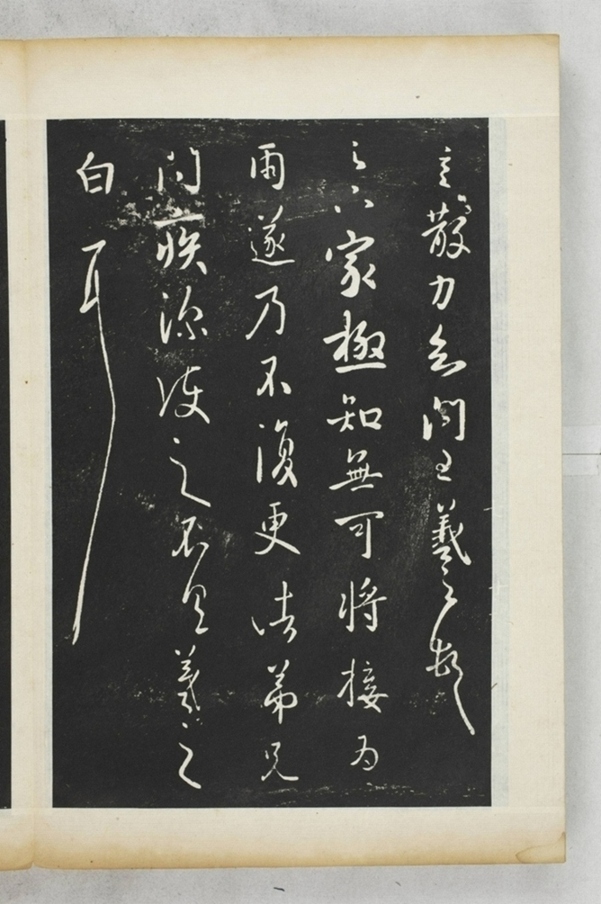 散力知問王羲之頓
足下家極知無可將接為
雨遂乃不復更諸弟兄
問疾深護之不具羲之
白耳